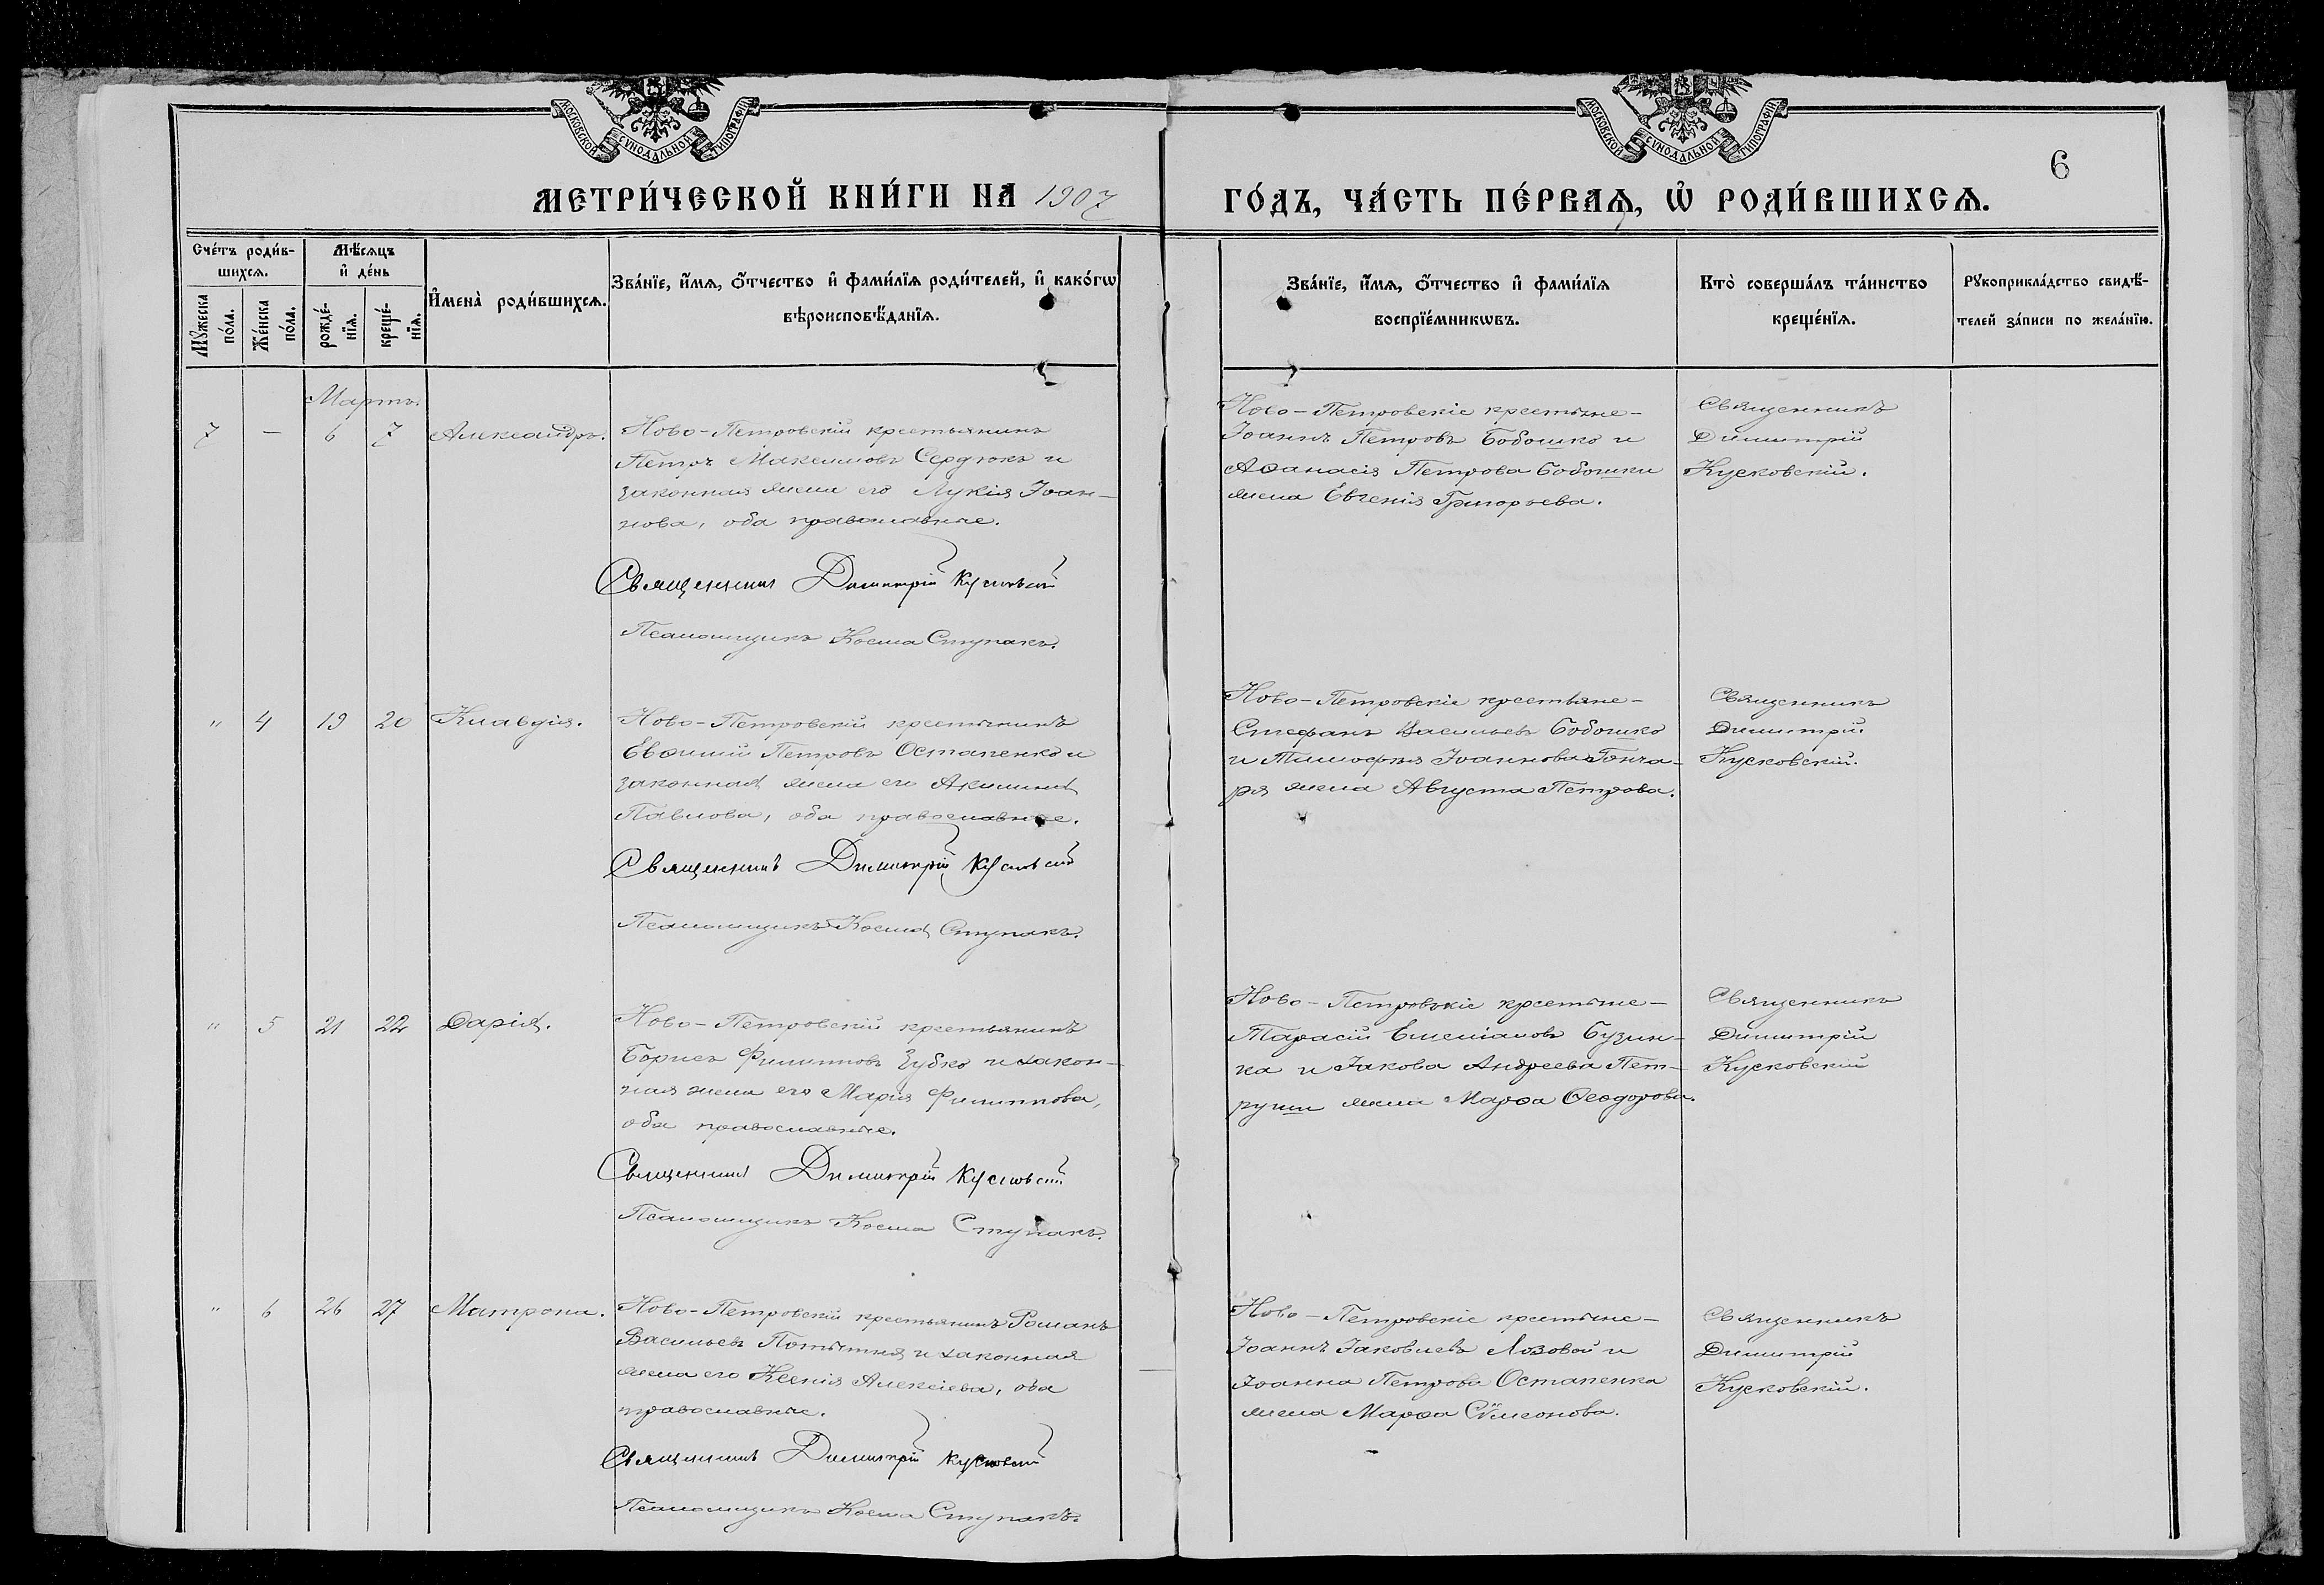 МОСКОВСКОЙ СѴНОДАЛЬНОЙ ТИПОГРАФІИ
МОСКОВСКОЙ СѴНОДАЛЬНОЙ ТИПОГРАФІИ
6
МЕТРИ́ЧЕСКОЙ КНИ́ГИ НА 1907
ГО́ДЪ, ЧА́СТЬ ПЕ́РВАѦ, Ѡ҆ РОДИ́ВШИХСѦ.
Сче́тъ роди́в-
шихсѧ.
Мѣ́сѧцъ
и҆ де́нь
И҆мена̀ роди́вшихсѧ.
Зва́нїе, и҆́мѧ, ѻ҆́тчество и҆ фами́лїѧ роди́телей, и҆ како́гѡ
вѣроисповѣ́данїѧ.
Мꙋ́жеска
по́ла.
Же́нска
по́ла.
рожде́-
нїѧ.
креще́-
нїѧ.
Зва́нїе, и҆́мѧ, ѻ҆́тчество и҆ фами́лїѧ
воспрїе́мникѡвъ.
Кто̀ соверша́лъ та́инство
креще́нїѧ.
Рꙋкоприкла́дство свидѣ́-
телей за́писи по жела́нїю.
Мартъ.
7 — 6 7 Александръ.
Ново-Петровскій крестьянинъ
Петръ Максимовъ Сердюкъ и
законная жена его Лукія Іоан-
нова, оба православные.
Священникъ Димитрій Кусковскій
Псаломщикъ Косма Ступакъ.
Ново-Петровскіе крестьяне-
Іоаннъ Петровъ Бобошко и
Аѳанасія Петрова Бобошки
жена Евгенія Григорьева.
Священникъ
Димитрій
Кусковскій.
" 4 19 20 Клавдія.
Ново-Петровскій крестьянинъ
Евѳимій Петровъ Остапенко и
законная жена его Акилина
Павлова, оба православные.
Священникъ Димитрій Кусковскій
Псаломщикъ Косма Ступакъ.
Ново-Петровскіе крестьяне-
Стефанъ Васильевъ Бобошко
и Тимофея Іоаннова Гонча-
ря жена Августа Петрова.
Священникъ
Димитрій
Кусковскій.
" 5 21 22 Дарія.
Ново-Петровскій крестьянинъ
Борисъ Филипповъ Зубко и закон-
ная жена его Марія Филиппова,
оба православные.
Священникъ Димитрій Кусковскій
Псаломщикъ Косма Ступакъ.
Ново-Петровскіе крестьяне-
Тарасій Емеліановъ Бузин-
ка и Іакова Андреева Пет-
руши жена Марѳа Ѳеодорова.
Священникъ
Димитрій
Кусковскій
" 6 26 27 Матрона.
Ново-Петровскій крестьянинъ Романъ
Васильевъ Потытня и законная
жена его Ксенія Алексіева, оба
православные.
Священникъ Димитрій Кусковскій
Псаломщикъ Косма Ступакъ.
Ново-Петровскіе крестьяне-
Іоаннъ Іаковлевъ Лозовой и
Іоанна Петрова Остапенка
жена Марѳа Сѵмеонова.
Священникъ
Димитрій
Кусковскій.